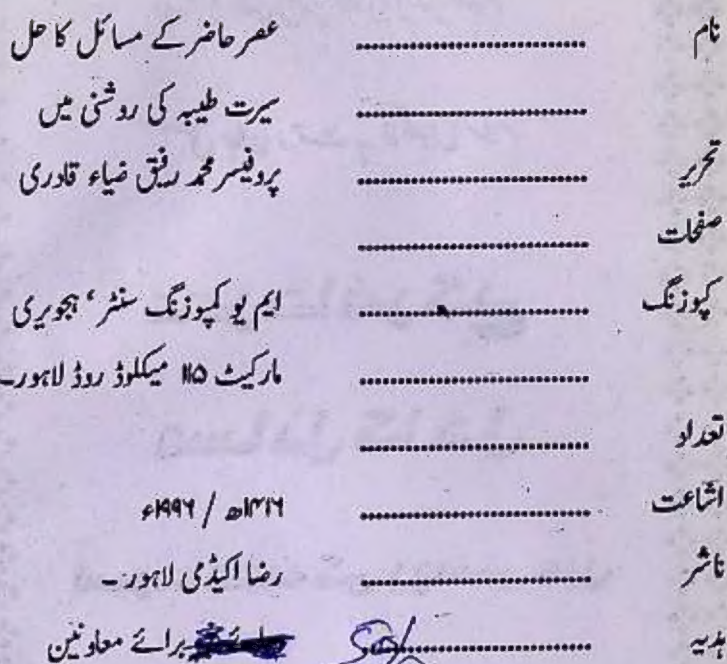 نام ................................ عصر حاضر کے مسائل کا حل
................................ سیرت طیبہ کی روشنی میں
تحریر ................................ پروفیسر محمد رفیق ضیاء قادری
صفحات ................................
کمپوزنگ ................................ ایم یو کمپوزنگ سنٹر ' ہجویری
................................ مارکیٹ ۱۱۵ میکلوڈ روڈ لاہور۔
تعداد ................................
اشاعت ................................ ۱۴۱۶ھ / ۱۹۹۶ء
ناشر ................................ رضا اکیڈمی لاہور ۔
ہدیہ ................................ برائے معاونین